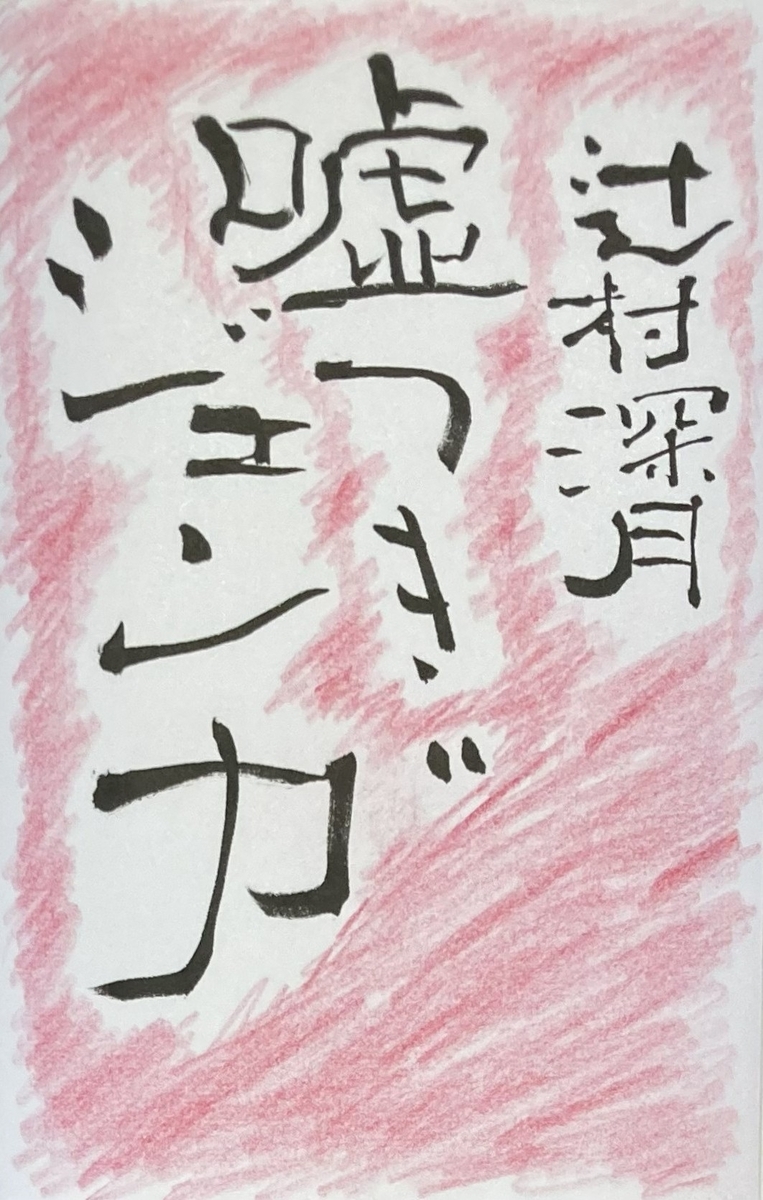 辻村深月
嘘つき
ジェンガ